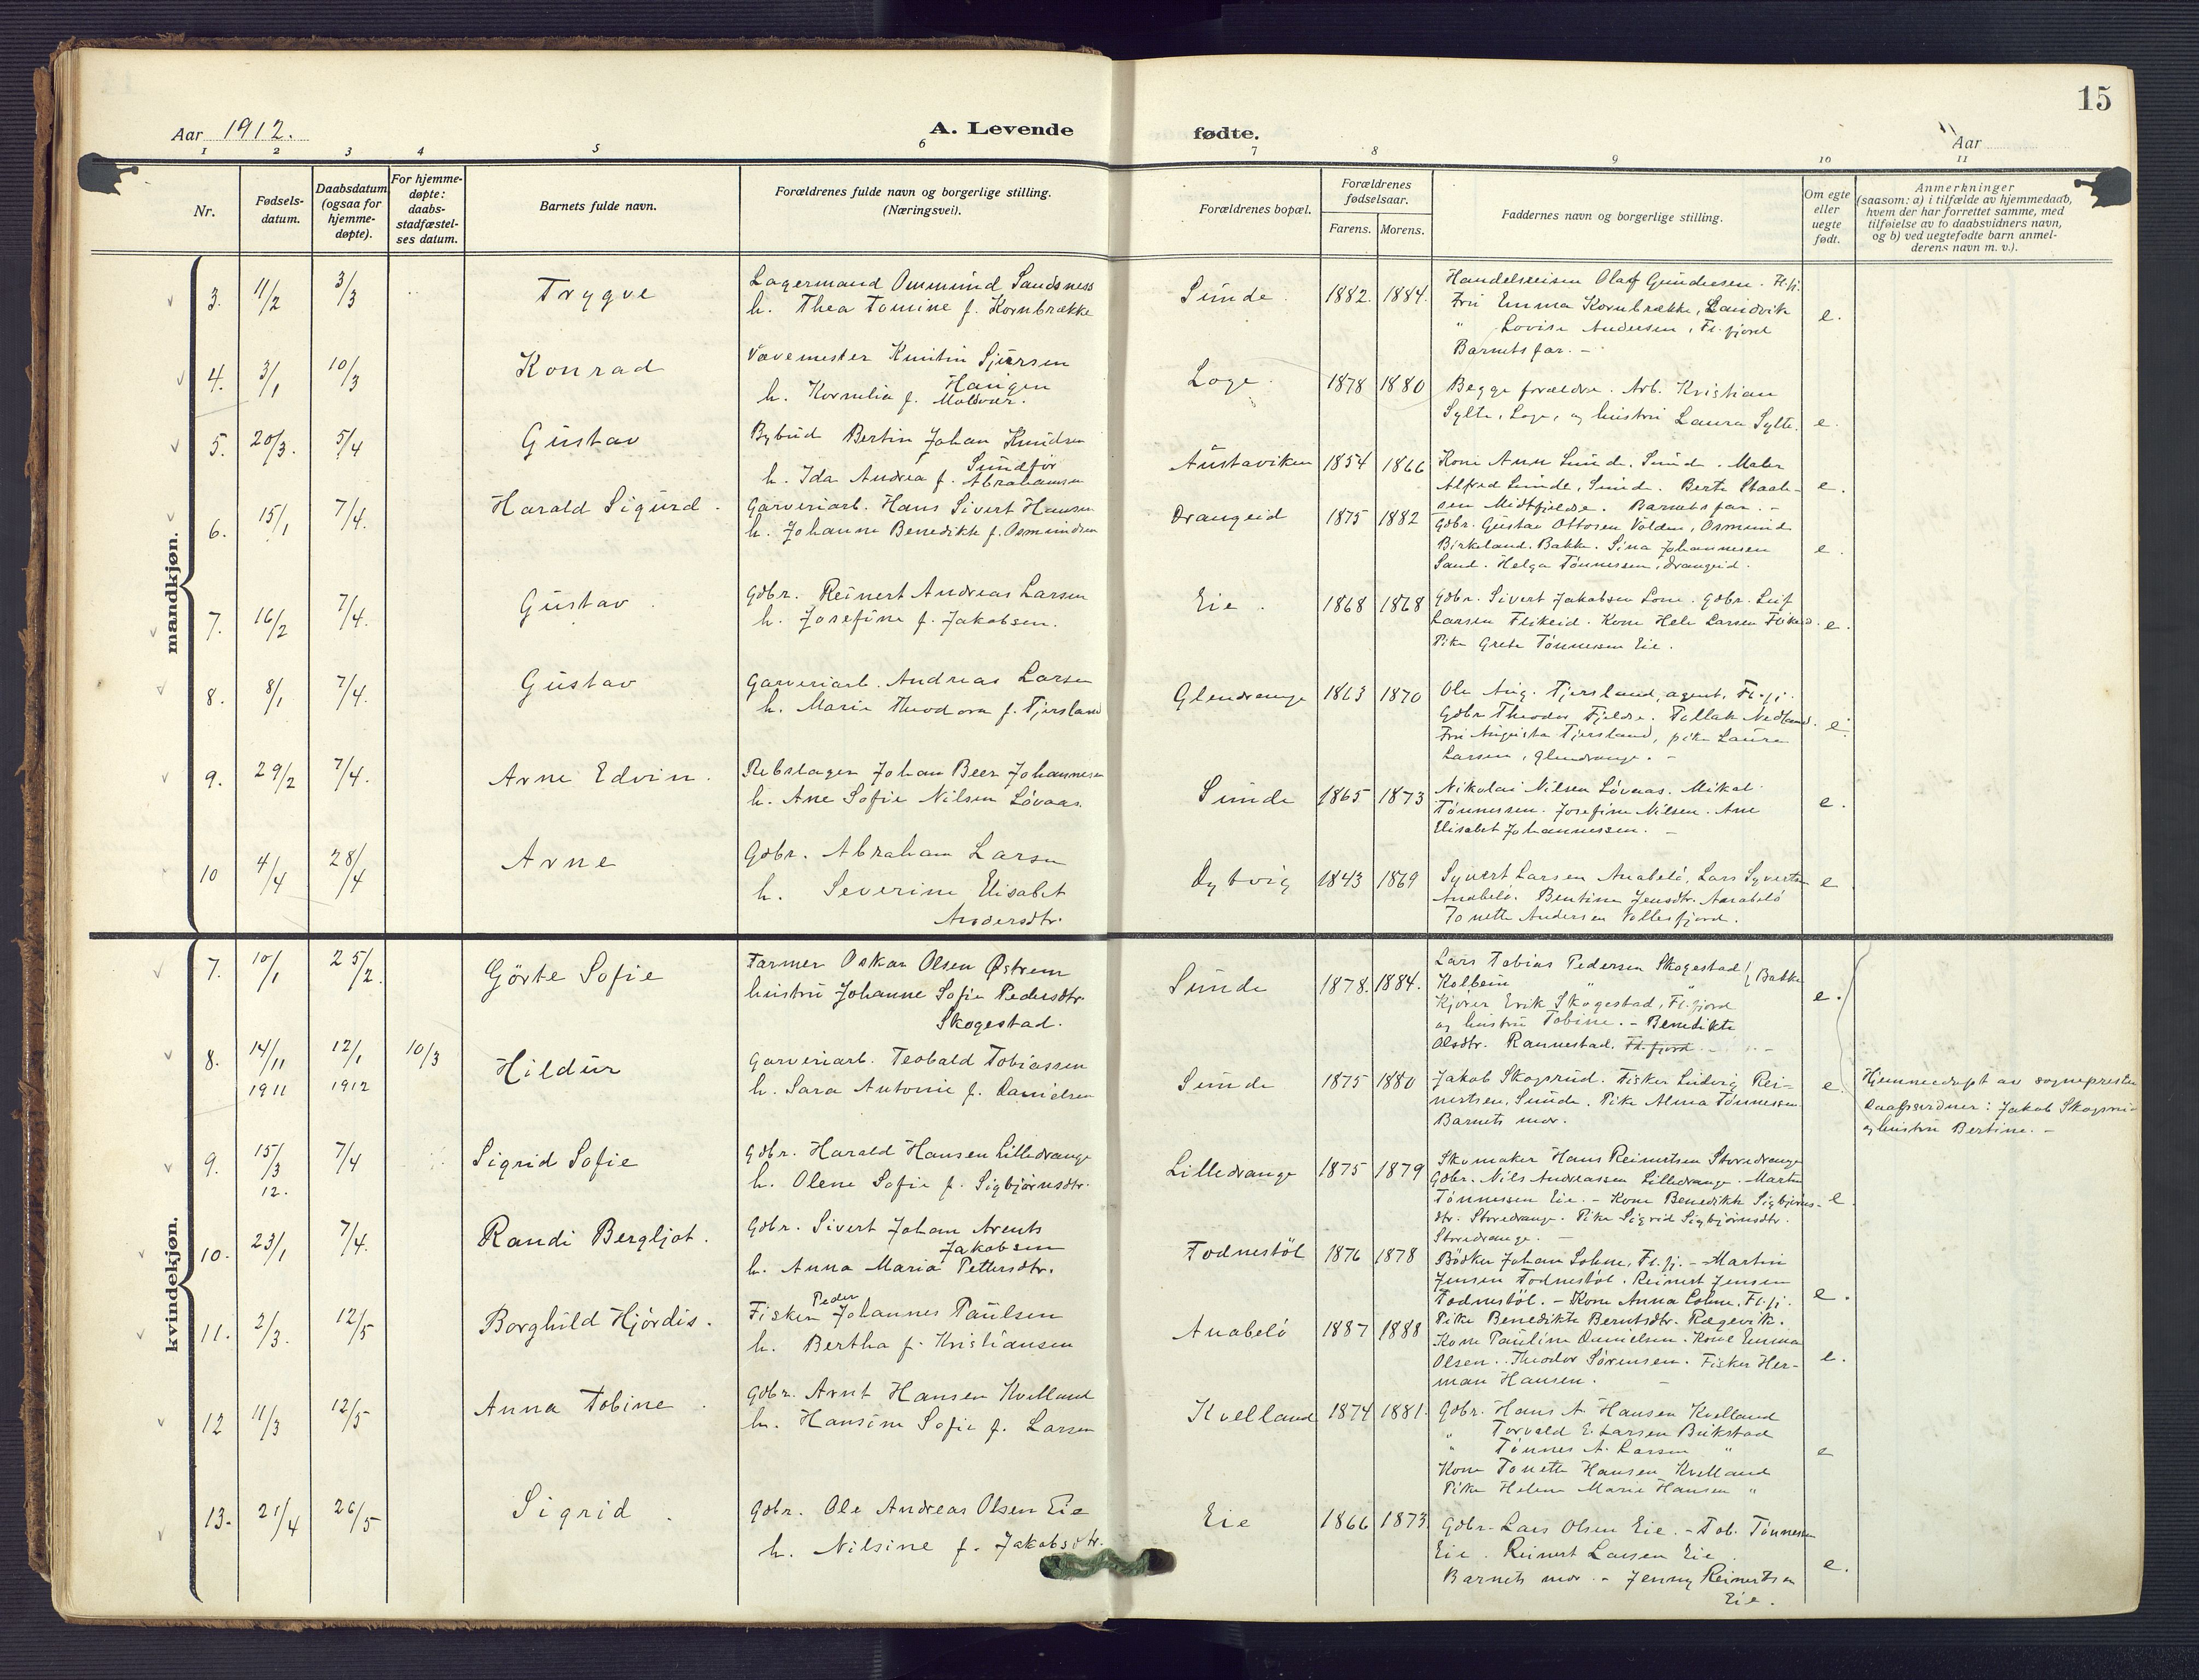 15
Aar 1912.
A. Levende fødte.
Aar
1 2 3 4 5 6 7 8 9 10 11
Nr.
Fødsels-
datum.
Daabsdatum
(ogsaa for
hjemme-
døpte).
For hjemme-
døpte:
daabs-
stadfæstel-
ses datum.
Barnets fulde navn.
Forældrenes fulde navn og borgerlige stilling.
(Næringsvei).
Forældrenes bopæl.
Forældrenes
fødselsaar.
Farens. Morens.
Faddernes navn og borgerlige stilling.
Om egte
eller
uegte
født.
Anmerkninger
(saasom: a) i tilfælde av hjemmedaab,
hvem der har forrettet samme, med
tilføielse av to daabsvidners navn,
og b) ved uegtefødte barn anmel-
derens navn m. v.).
mandkjøn.
3. 11/2 3/3 Trygve
Lagermand Ommund Sandsness
h. Thea Tomine f. Kornbrække
Sunde. 1882. 1884.
Handelsreisen Olaf Gundersen. Fl.fj.
Fru Emma Kornbrække, Landvik
" Lovise Andersen, Fl.fjord
Barnets far. –
e.
4. 3/1 10/3 Konrad
Vævemester Knutin Sjursen
Haugen
h. Kornelia f. Moldver.
Loge. 1878 1880
Begge forældre. Arb. Kristian
Sylte, Loge, og hustru Laura Sylte.
e.
5. 20/3. 5/4 Gustav
Bybud Bertin Johan Knudsen
Sundfør
h. Ida Andrea f. Abrahamsen
Austaviken 1854 1866
Kone Ann Sunde, Sunde. Maler
Alfred Sunde, Sunde. Berte Staal-
sen Midtfjeldse. Barnets far. –
e.
6. 15/1 7/4. Harald Sigurd.
Garveriarb. Hans Sivert Hansen
h. Johanne Benedikte f. Osmundsen
Drangeid 1875 1882
Gdbr. Gustav Ottosen Valden, Osmund
Birkeland. Bakke. Sina Johannesen
Sand. Helga Tönnessen, Drangeid.
e.
7. 16/2 7/4. Gustav.
Gdbr. Reinert Andreas Larsen
h. Josefine f. Jakobsen.
Eie. 1868 1868
Gdbr. Sivert Jakobsen Lone. Gdbr. Leif
Larsen Flikeid. Kone Hele Larsen Flikeid.
Pike Grete Tönnessen Eie.
e.
8. 8/1 7/4. Gustav
Garveriarb. Andreas Larsen
h. Marie Theodora f. Tjersland
Glendrange 1863 1870
Ole Aug. Tjersland, agent, Fl.fj.
Gdbr. Theodor Fjeldse. Tallak Nedland.
Fru Augusta Tjersland, pike Laura
Larsen, Glendrange. –
e.
9. 29/2 7/4. Arne Edvin.
Rebslager Johan Beer Johannesen
h. Ane Sofie Nilsen Lövaas.
Sunde 1865 1873
Nikolai Nilsen Lövaas. Mikal
Tönnessen. Josefine Nilsen. Ane
Elisabet Johannessen. –
e.
10 4/4 28/4 Arne
Gdbr. Abraham Larsen
h. Severine Elisabet
Andersdtr.
Dybvig 1843 1869
Syvert Larsen Anabelö, Lars Syvertsen
Anabelö. Bentine Jensdtr. Anabelö
Tonette Andersen Vollesfjord.
e
kvindekjøn.
7. 10/1 25/2. Görte Sofie
Farmer Oskar Olsen Østrem
hustru Johanne Sofie Pedersdtr.
Skogestad.
Sunde 1878. 1884.
Lars Tobias Pedersen Skogestad } Bakke
Kolbein " "
Kjörer Erik Skogestad, Fl.fjord
og hustru Tobine. – Benedikte
Olsdtr. Rannestad. Fl.fjord. –
e.
8. 14/11 12/1 10/3 Hildur
1911 1912
Garveriarb. Teobald Tobiassen
h. Sara Antonie f. Danielsen
Sunde 1875 1880
Jakob Skogsrud. Fisker Ludvig Rei-
nertsen, Sunde. Pike Alma Tönnessen
Barnets mor.
e.
Hjemmedøpt av sognepresten
Daabsvidner: Jakob Skogsrud
og hustru Bertine. –
9. 15/3 7/4 Sigrid Sofie
12.
Gdbr. Harald Hansen Lilledrange
h. Olene Sofie f. Sigbjörnsdtr.
Lilledrange 1875 1879
Skomaker Hans Reinertsen Storedrange
Gdbr. Nils Andreassen Lilledrange. Martin
Tönnessen Eie. – Kone Benedikte Sigbjörns-
dtr. Storedrange. Pike Sigrid Sigbjörnsdtr.
Storedrange. –
e.
10. 23/1 7/4. Randi Bergljot.
Gdbr. Sivert Johan Arents
Jakobsen
h. Anna Maria Pettersdtr.
Todnestöl 1876 1878
Bödker Johan Lohne, Fl.fj. – Martin
Jensen Todnestöl. Reinert Jensen
Todnestöl. – Kone Anna Lohne, Fl.fj.
Pike Benedikte Berntsdtr. Rægevik.
e.
11. 2/3. 12/5 Borghild Hjördis.
Peder
Fisker Johannes Paulsen
h. Bertha f. Kristiansen
Anabelö 1887 1888
Kone Pauline Danielsen. Kone Emma
Olsen. Theodor Sörensen. Fisker Her-
man Hansen. –
e.
12 11/3 12/5 Anna Tobine.
Gdbr. Arnt Hansen Kvelland
h. Hansine Sofie f. Larsen
Kvelland 1874 1881.
Gdbr. Hans A. Hansen Kvelland
" Torvald E. Larsen Brikstad
" Tönnes A. Larsen "
Kone Tonette Hansen Kvelland
Pike Helene Marie Hansen "
e
13. 21/4 26/5 Sigrid.
Gdbr. Ole Andreas Olsen Eie
h. Nilsine f. Jakobsdtr.
Eie 1866 1873
Gdbr. Lars Olsen Eie. – Tob. Tönnessen
Eie. Reinert Larsen Eie.
Barnets mor. – Jenny Reinertsen
Eie.
e.